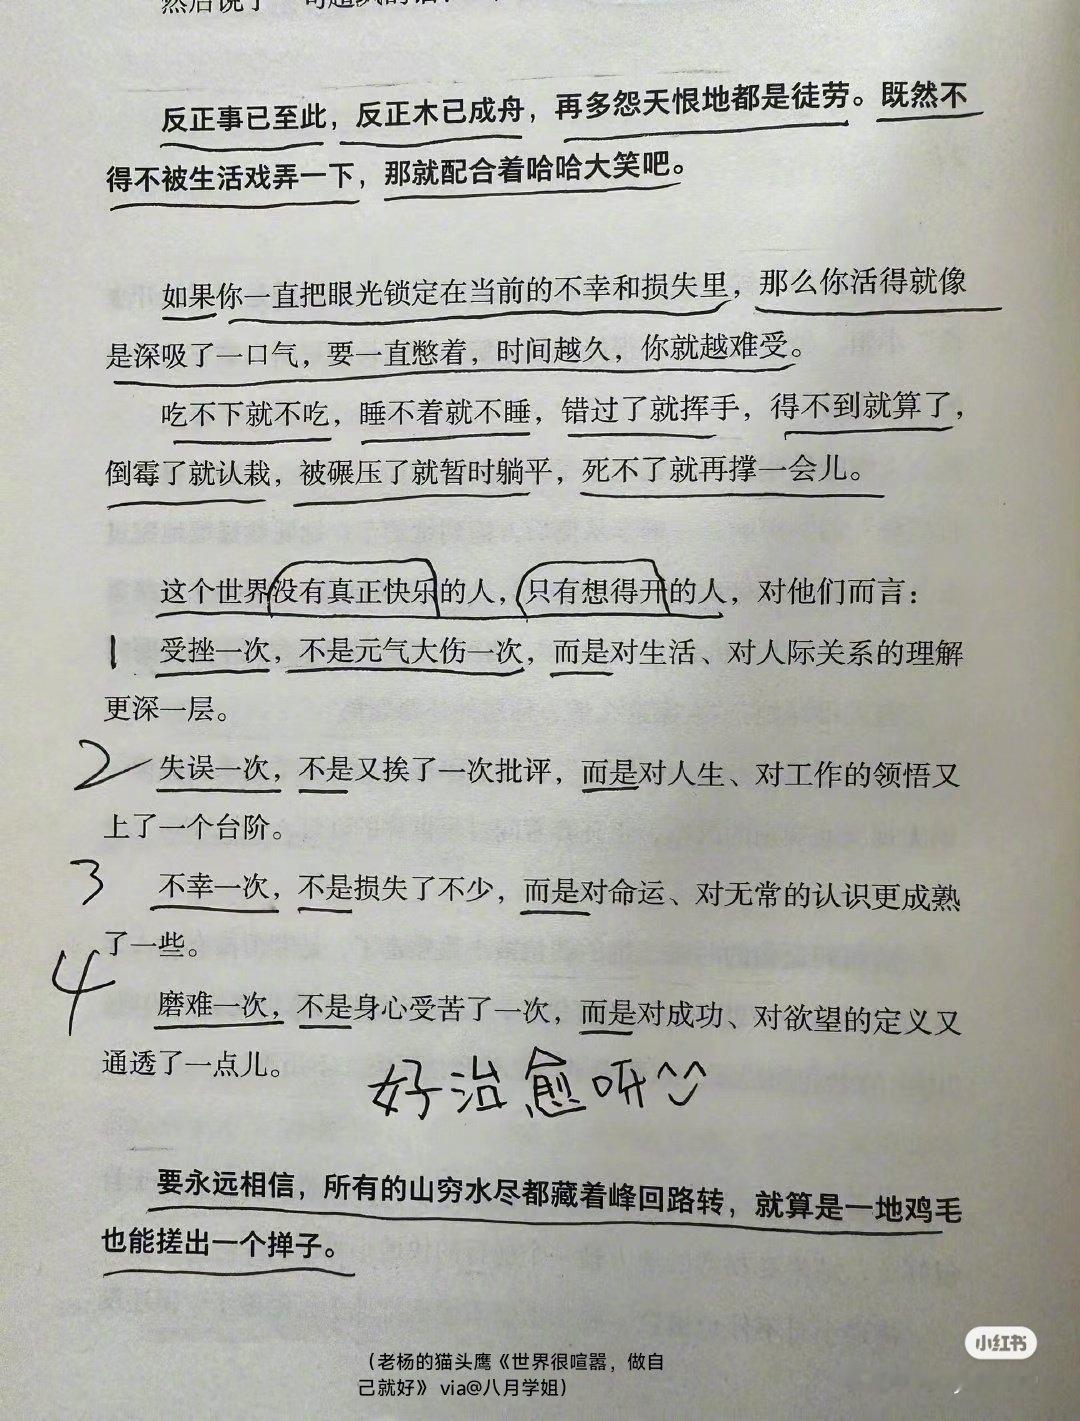 反正事已至此，反正木已成舟，再多怨天恨地都是徒劳。既然不
得不被生活戏弄一下，那就配合着哈哈大笑吧。
如果你一直把眼光锁定在当前的不幸和损失里，那么你活得就像
是深吸了一口气，要一直憋着，时间越久，你就越难受。
吃不下就不吃，睡不着就不睡，错过了就挥手，得不到就算了，
倒霉了就认栽，被碾压了就暂时躺平，死不了就再撑一会儿。
这个世界没有真正快乐的人，只有想得开的人，对他们而言：
1 受挫一次，不是元气大伤一次，而是对生活、对人际关系的理解
更深一层。
2 失误一次，不是又挨了一次批评，而是对人生、对工作的领悟又
上了一个台阶。
3 不幸一次，不是损失了不少，而是对命运、对无常的认识更成熟
了一些。
4 磨难一次，不是身心受苦了一次，而是对成功、对欲望的定义又
通透了一点儿。
好治愈呀^^
要永远相信，所有的山穷水尽都藏着峰回路转，就算是一地鸡毛
也能搓出一个掸子。
小红书
（老杨的猫头鹰《世界很喧嚣，做自
己就好》 via@八月学姐）